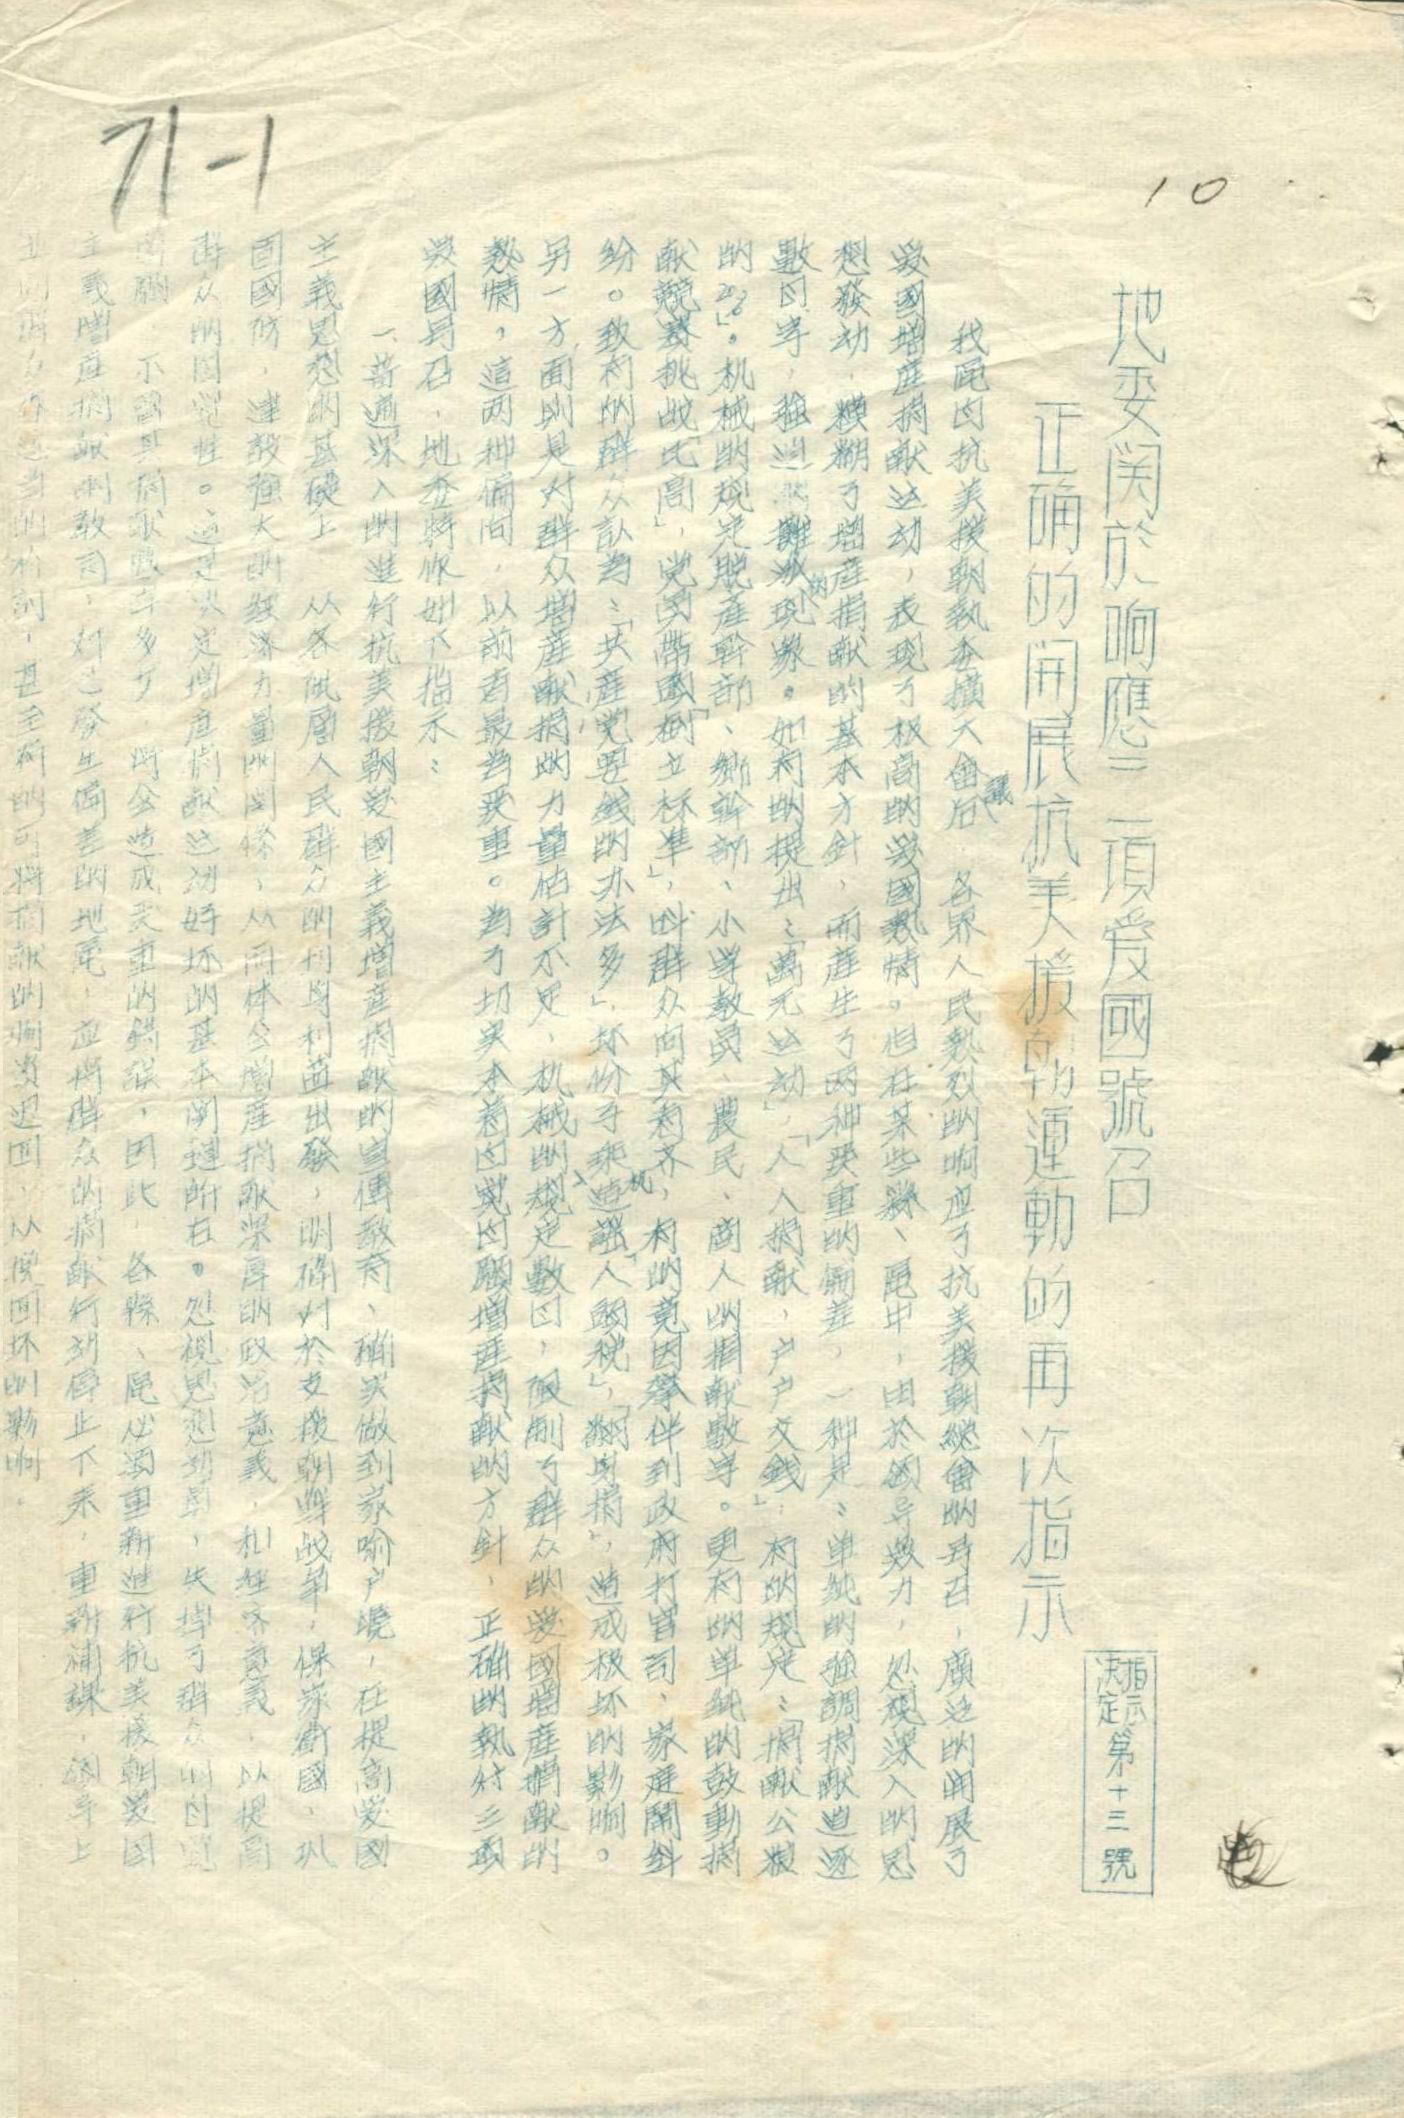 71-1
10
地委関於响應三項爱國號召
正确的開展抗美援朝運動的再次指示
指示
决定
第十三號
我區自抗美援朝執委擴大會議后 各界人民熱烈的响应了抗美援朝總會的号召，廣泛的開展了
爱國增産捐献运动，表现了极高的爱國熱情。但在某些縣、區中，由於領导效力，忽視深入的思
想發动，模糊了增産捐献的基本方針，而産生了两种严重的偏差，一种是：单純的強調捐献追逐
數目字，強迫 攤派的现象。如有的提出：「萬元运动」，「人人捐献，户户交錢」；有的规定：「捐献公粮
的2%」。机械的规定脱産幹部、鄉幹部、小学教員、農民、商人的捐献數字。更有的单純的鼓動捐
献競赛挑战比高」，党員帶頭「树立标准」，叫群众向其看齐，有的竟因攀伴到政府打官司、家庭鬧糾
紛。致有的群众訟為：「共産党要錢的办法多」，坏份子乘机造謡「人頭税」，「捐」，造成极坏的影响。
另一方面则是对群众增産献捐的力量估計不足，机械的规定數目，限制了群众的爱國增産捐献的
熱情，這两种偏向，以前者最為严重。為了切实本着自覚自願增産捐献的方針，正确的執行三項
爱國号召，地委特作如下指示：
一、普遍深入的進行抗美援朝爱國主義增産捐献的宣傳教育，確实做到家喻户曉，在提高爱國
主義思想的基礎上 从各阶層人民群众的切身利益出發，明確对於支援朝鮮战争，保家衛國、巩
固國防，建設強大的経济力量的関係，从而体会增産捐献深厚的政治意義，和経济意義，以提高
群众的自覚性。這是决定增産捐献运动好坏的基本関鍵所在。忽視思想領导，失掉了群众的自覚
自願，不論其捐献數字多少，則会造成严重的錯誤，因此，各縣、區必須重新進行抗美援朝爱国
主義增産捐献的教育，对已發生偏差的地區，应将群众的捐献行动停止下來，重新補課，領导上
并向群众作适当的检討，甚至有的可将捐献的物資退回，以挽回坏的影响。